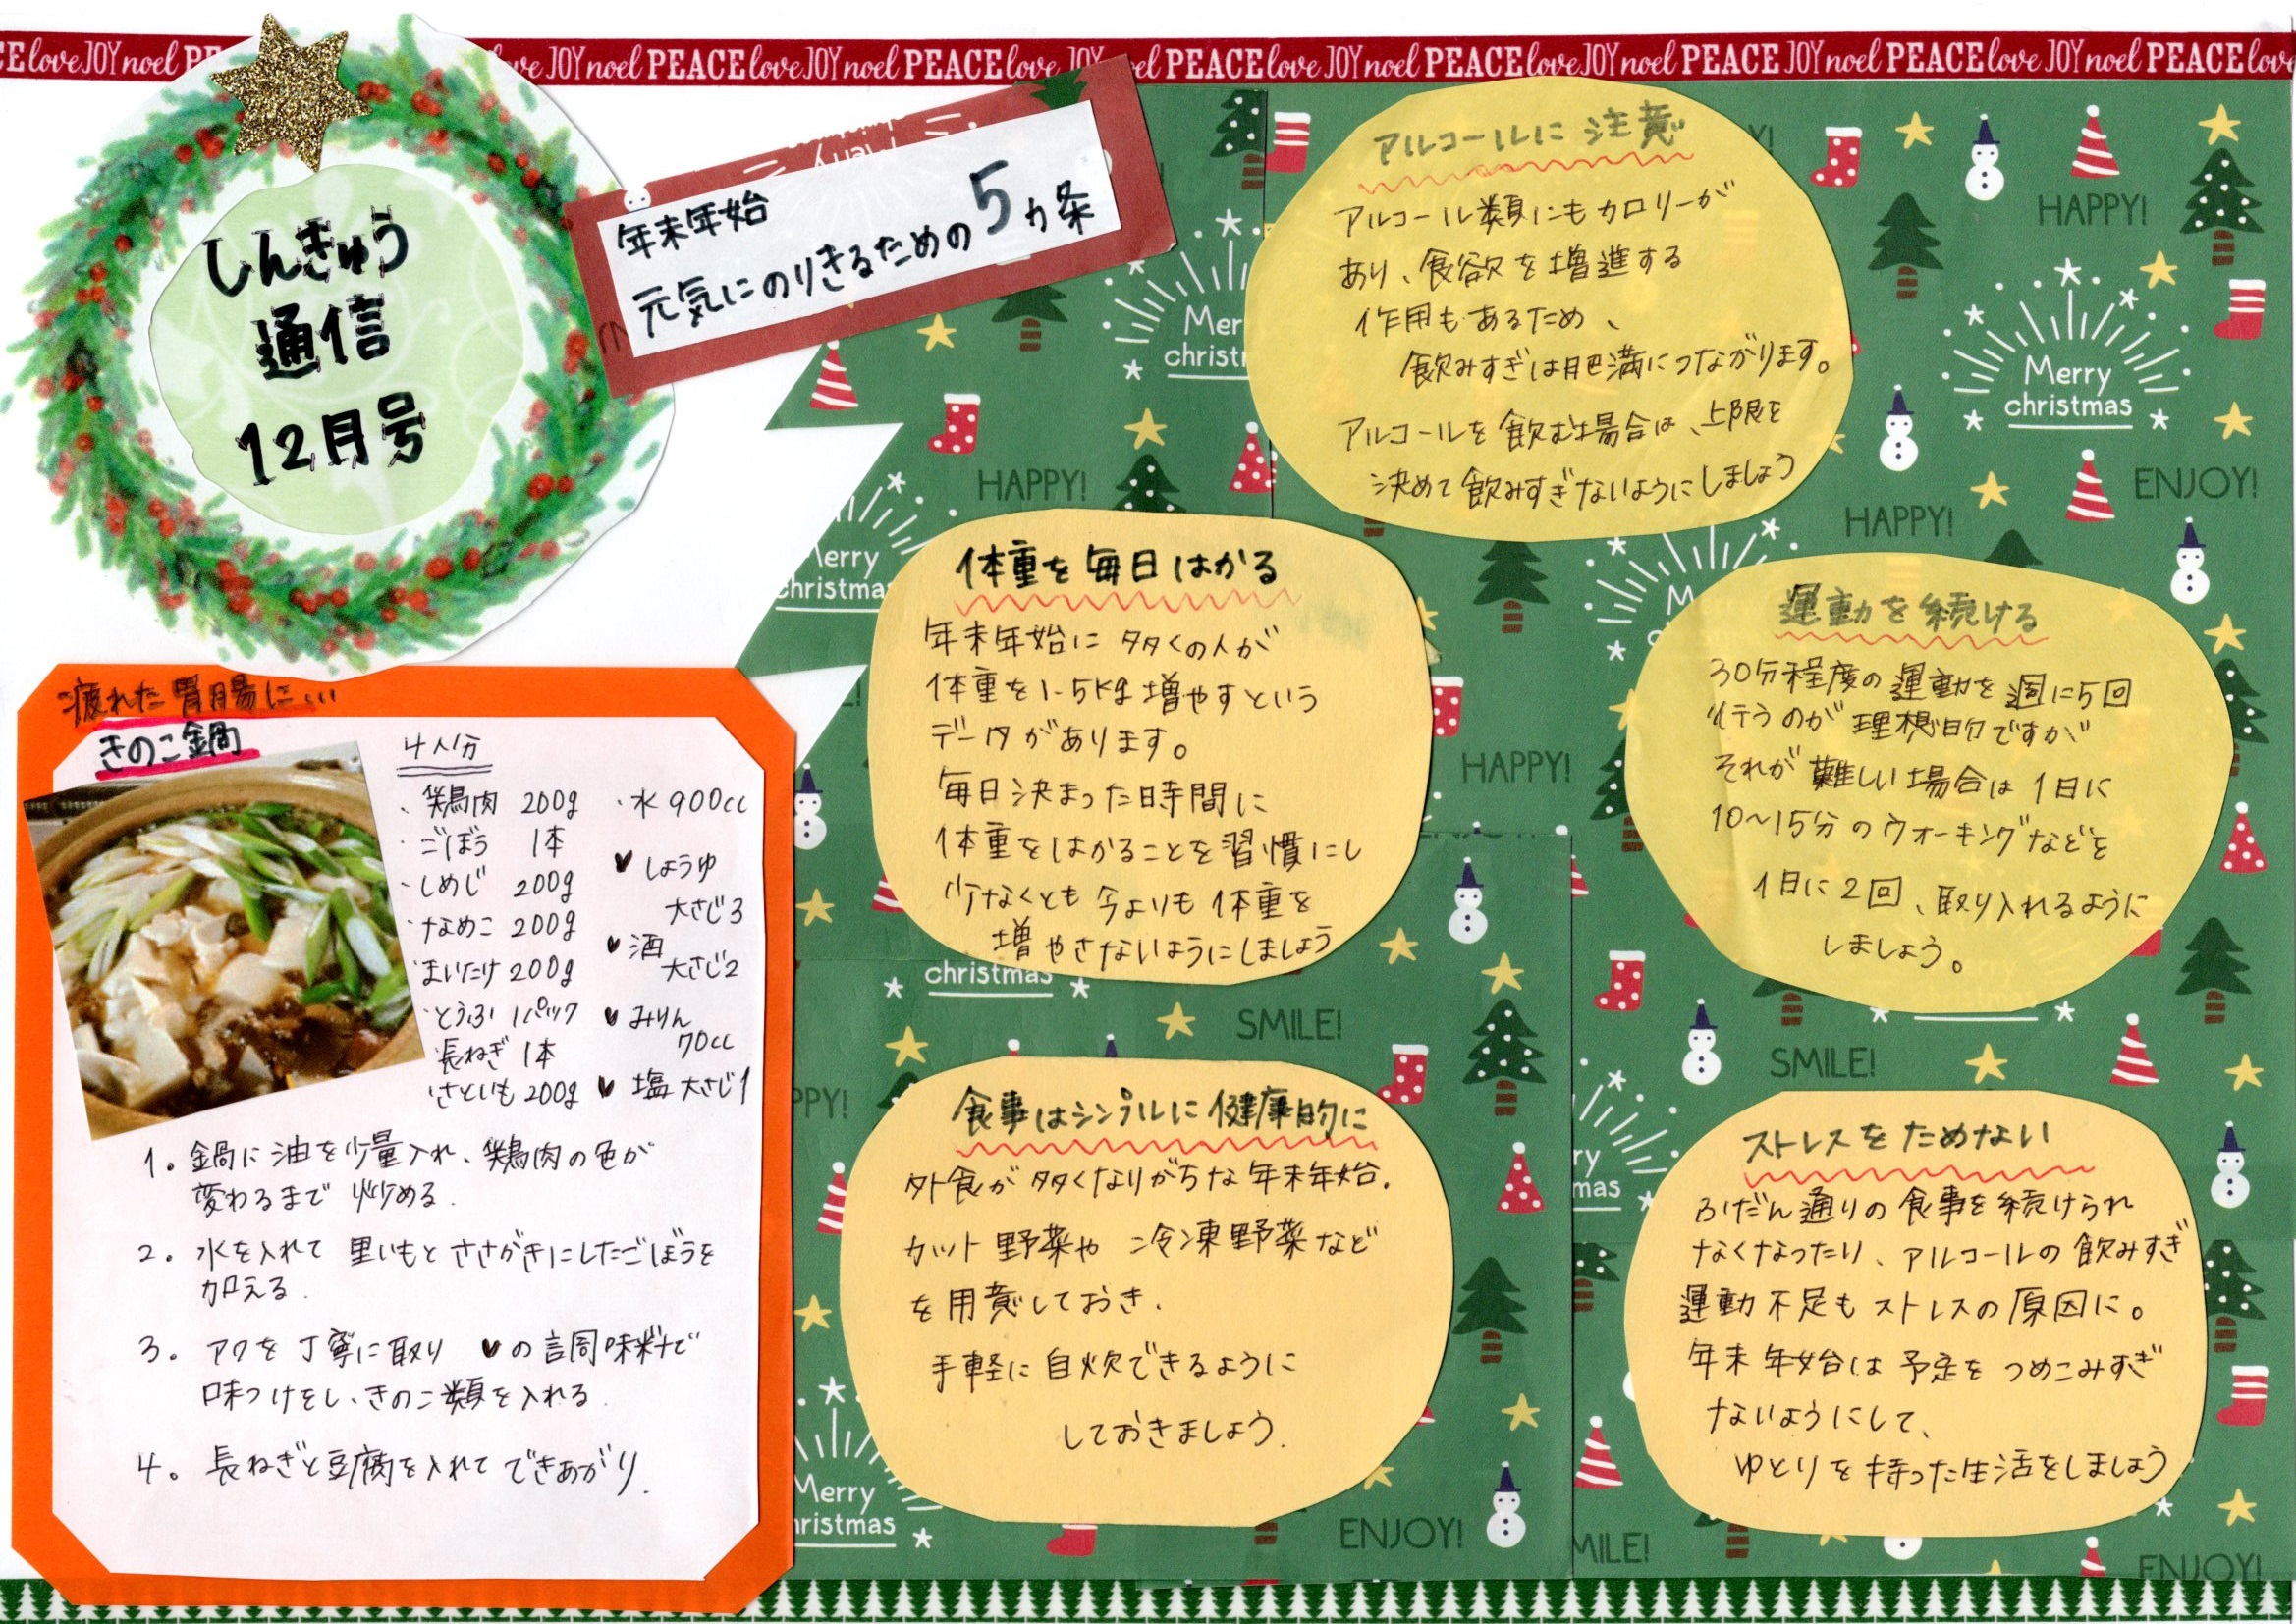 PEACE love JOY noel PEACE love JOY noel PEACE love JOY noel PEACE love JOY noel PEACE JOY noel PEACE love JOY noel PEACE love
しんきゅう
通信
12月号
年末年始
元気にのりきるための5ヵ条
アルコールに注意
アルコール類にもカロリーが
あり、食欲を増進する
作用もあるため、
飲みすぎは肥満につながります。
アルコールを飲む場合は、上限を
決めて飲みすぎないようにしましょう
体重を毎日はかる
年末年始に多くの人が
体重を1-5kg増やすという
データがあります。
毎日決まった時間に
体重をはかることを習慣にし
少なくとも今よりも体重を
増やさないようにしましょう
運動を続ける
30分程度の運動を週に5回
行うのが理想的ですが
それが難しい場合は1日に
10~15分のウォーキングなどを
1日に2回、取り入れるように
しましょう。
食事はシンプルに健康的に
外食が多くなりがちな年末年始.
カット野菜や冷凍野菜など
を用意しておき、
手軽に自炊できるように
しておきましょう.
ストレスをためない
ふだん通りの食事を続けられ
なくなったり、アルコールの飲みすぎ
運動不足もストレスの原因に。
年末年始は予定をつめこみすぎ
ないようにして、
ゆとりを持った生活をしましょう
疲れた胃腸に...
きのこ鍋
4人分
・鶏肉 200g
・ごぼう 1本
・しめじ 200g
・なめこ 200g
・まいたけ 200g
・とうふ 1パック
・長ねぎ 1本
・さといも 200g
・水 900cc
♥しょうゆ
大さじ3
♥酒
大さじ2
♥みりん
70cc
♥塩 大さじ1
1。鍋に油を少量入れ、鶏肉の色が
変わるまで炒める.
2。水を入れて里いもとささがきにしたごぼうを
加える.
3。アクを丁寧に取り♥の調味料で
味つけをし、きのこ類を入れる.
4。長ねぎと豆腐を入れてできあがり.
Merry
christmas
HAPPY!
ENJOY!
HAPPY!
HAPPY!
Merry
christmas
HAPPY!
christmas
SMILE!
SMILE!
Merry
christmas
ENJOY!
SMILE!
ENJOY!